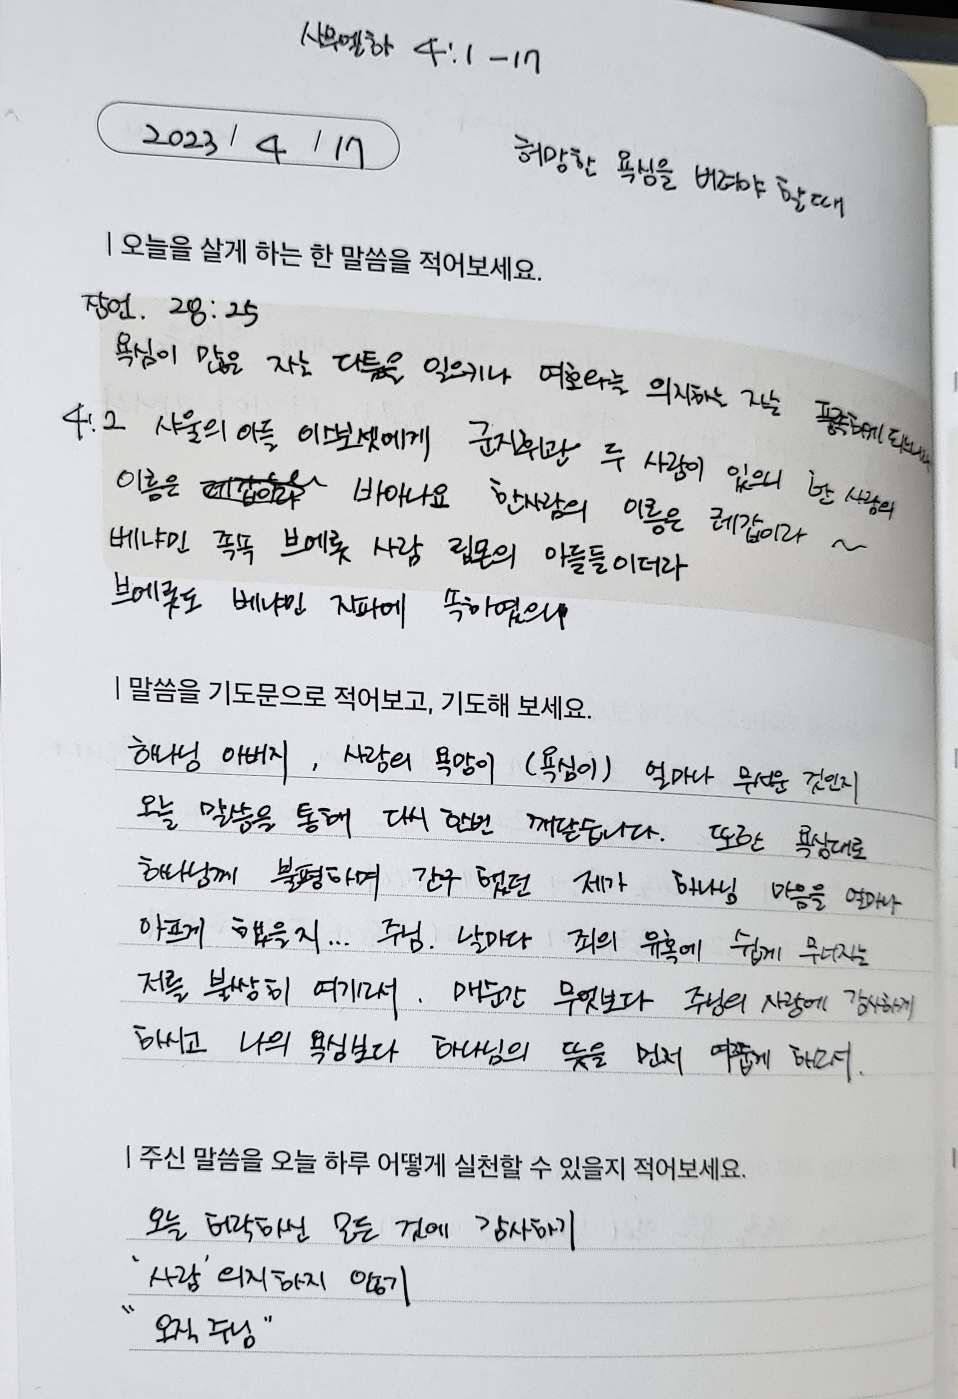 사무엘하 4:1-17
2023/4/17
허망한 욕심을 버려야 할 때
오늘을 살게 하는 한 말씀을 적어보세요.
잠언. 28:25
욕심이 많은 자는 다툼을 일으키나 여호와를 의지하는 자는 풍족하게 되느니라
4:2 사울의 아들 이스보셋에게 군지휘관 두 사람이 있으니 한 사람의
이름은 바아나요 한사람의 이름은 레갑이라 ~
베냐민 족속 브에롯 사람 림몬의 아들들이더라
브에롯도 베냐민 지파에 속하였으니
말씀을 기도문으로 적어보고, 기도해 보세요.
하나님 아버지, 사람의 욕망이 (욕심이) 얼마나 무서운 것인지
오늘 말씀을 통해 다시 한번 깨닫습니다. 또한 욕심대로
하나님께 불평하며 간구 했던 제가 하나님 마음을 얼마나
아프게 했을지... 주님. 날마다 죄의 유혹에 쉽게 무너지는
저를 불쌍히 여기소서. 매순간 무엇보다 주님의 사랑에 감사하게
하시고 나의 욕심보다 하나님의 뜻을 먼저 여쭙게 하소서.
주신 말씀을 오늘 하루 어떻게 실천할 수 있을지 적어보세요.
오늘 허락하신 모든 것에 감사하기
'사람' 의지하지 않기
"오직 주님"